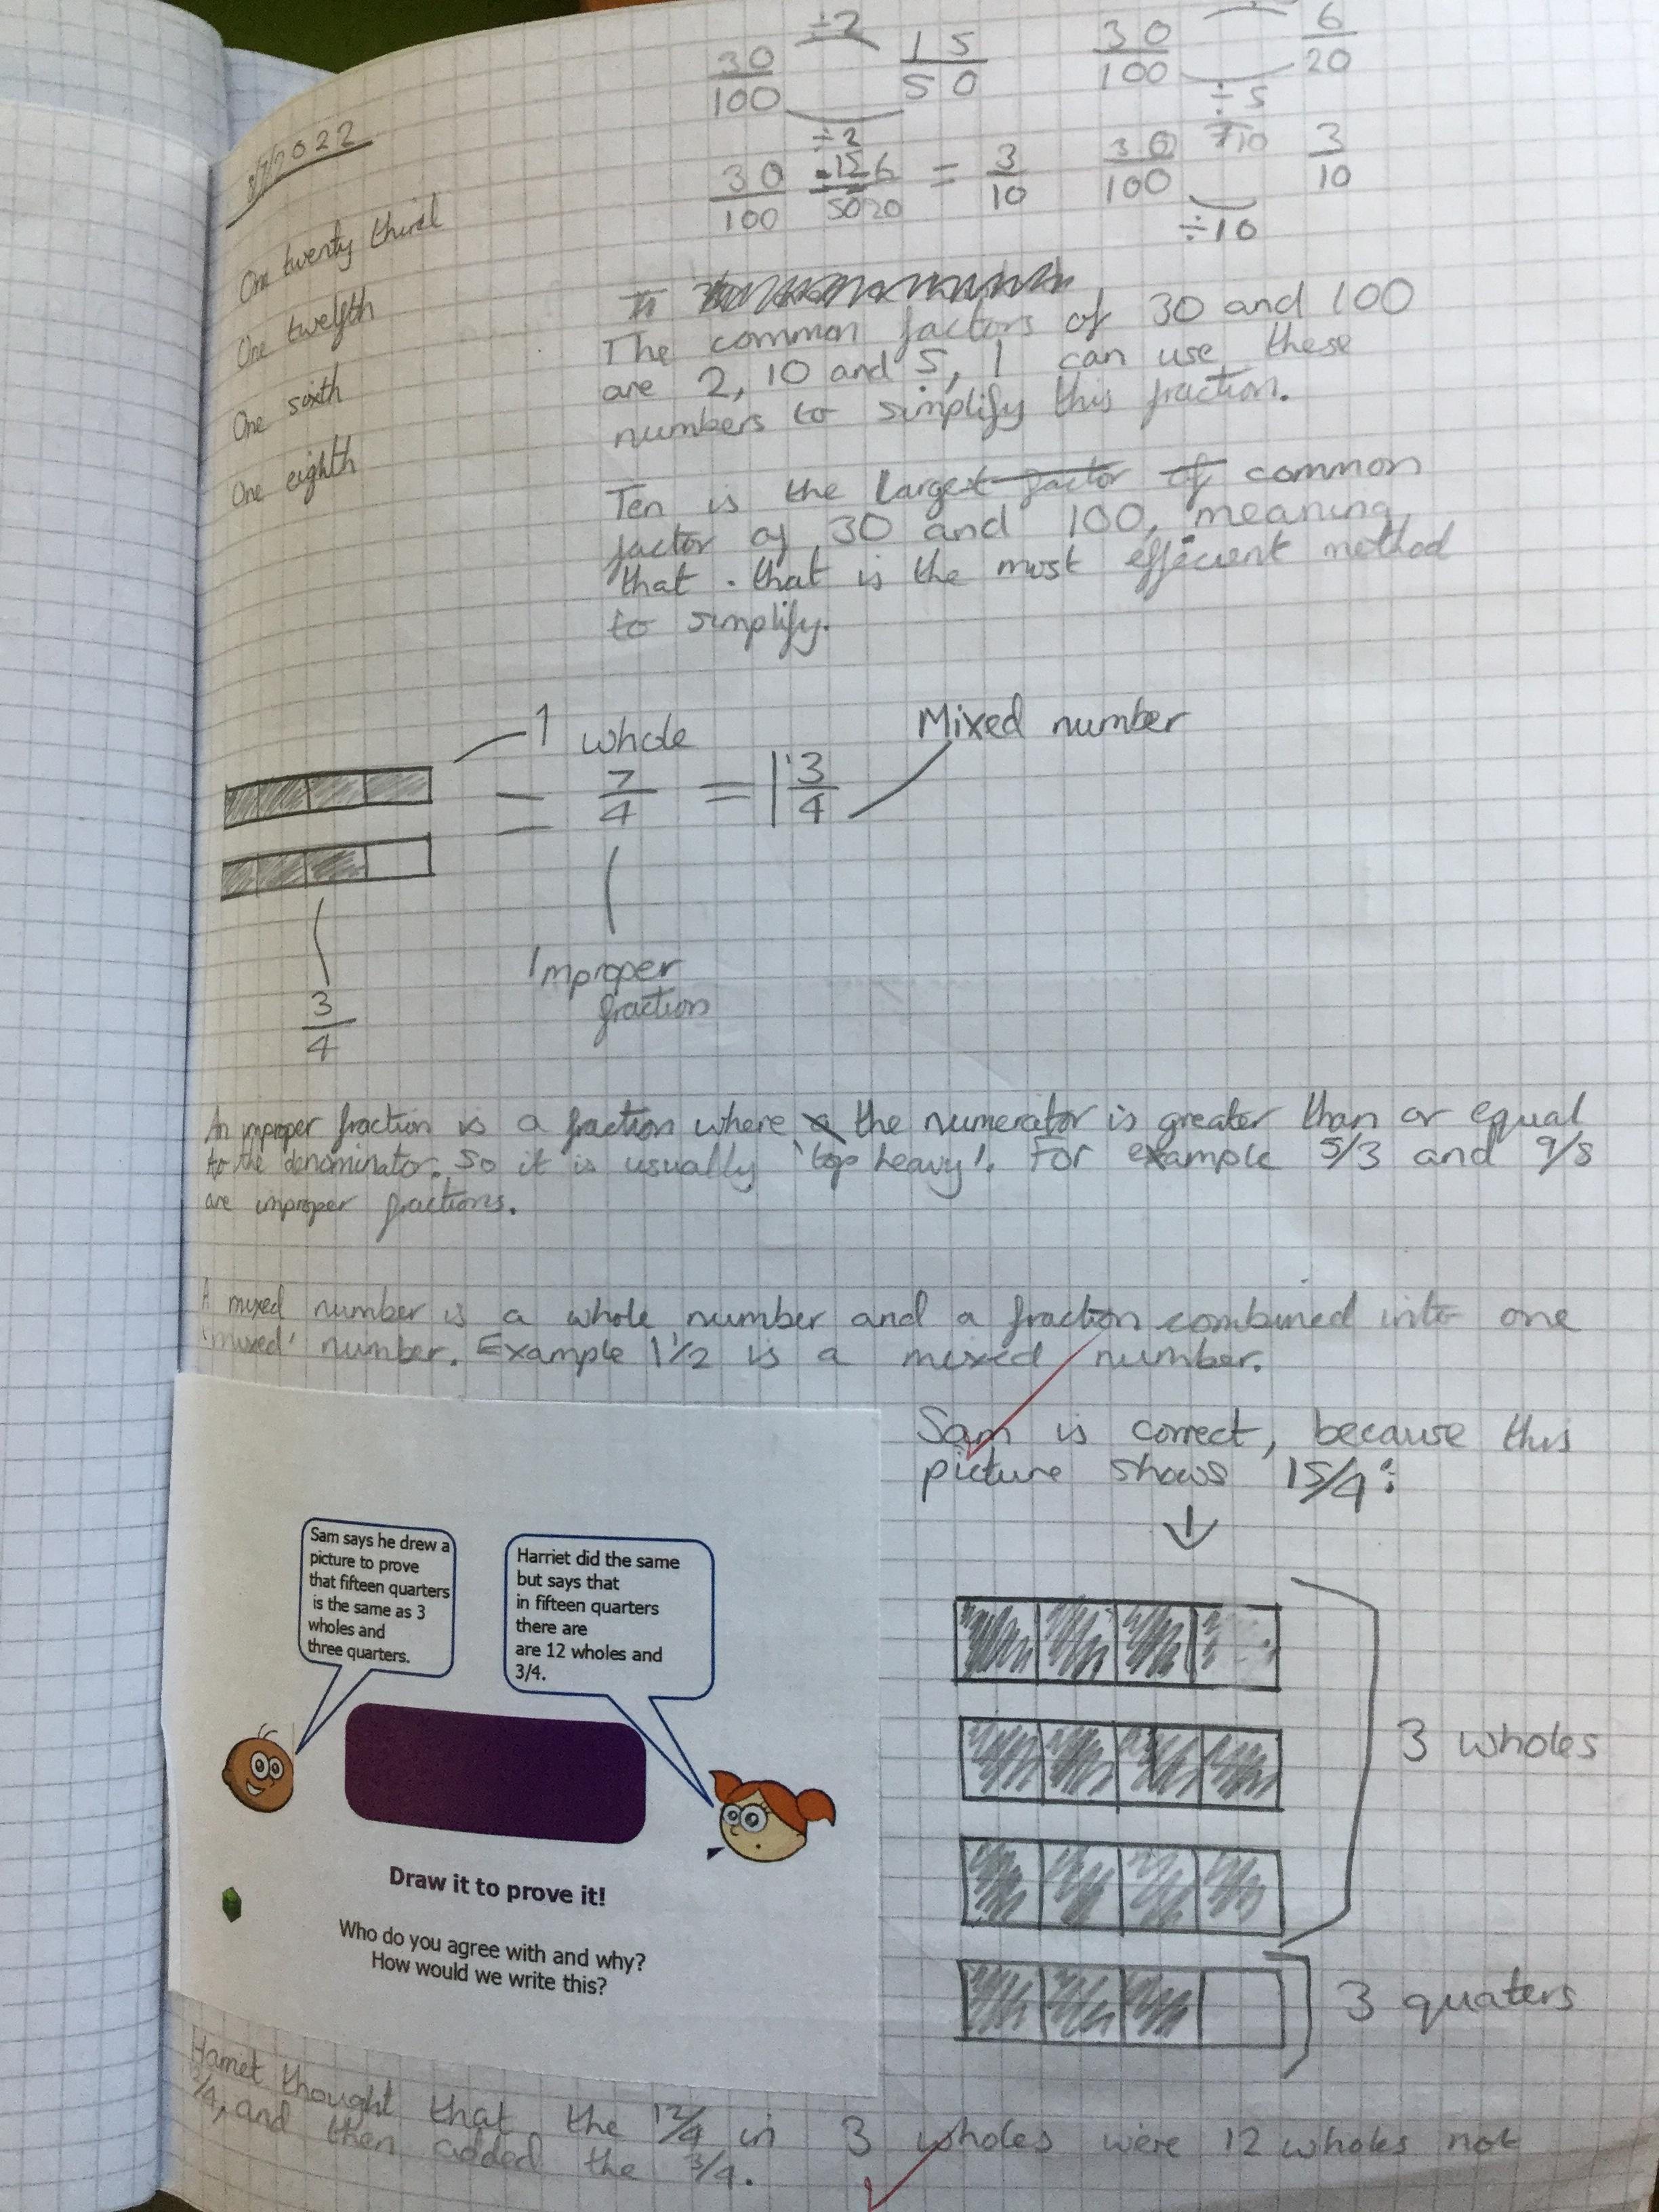 ÷2
30/100 15/50
÷2
30/100 6/20
÷5
30/100 6/20 = 3/10
30/100 ÷10 3/10
÷10
2022
One twenty third
One twelfth
One sixth
One eighth
The common factors of 30 and 100
are 2, 10 and 5, I can use these
numbers to simplify this fraction.
Ten is the largest factor of common
factor of 30 and 100, meaning
that . that is the most
to simplify.
1 whole
= 7/4 = 1 3/4
Mixed number
3/4
Improper
fraction
An improper fraction is a fraction where a the numerator is greater than or equal
to the denominator. So it is usually 'top heavy'. For example 5/3 and 9/8
are improper fractions.
A mixed number is a whole number and a fraction combined into one
'mixed' number. Example 1 1/2 is a mixed number.
Sam is correct, because this
picture shows 15/4:
3 wholes
3 quaters
Sam says he drew a
picture to prove
that fifteen quarters
is the same as 3
wholes and
three quarters.
Harriet did the same
but says that
in fifteen quarters
there are
are 12 wholes and
3/4.
Draw it to prove it!
Who do you agree with and why?
How would we write this?
Harriet thought that the 12/4 in 3 wholes were 12 wholes not
and then added the 3/4.